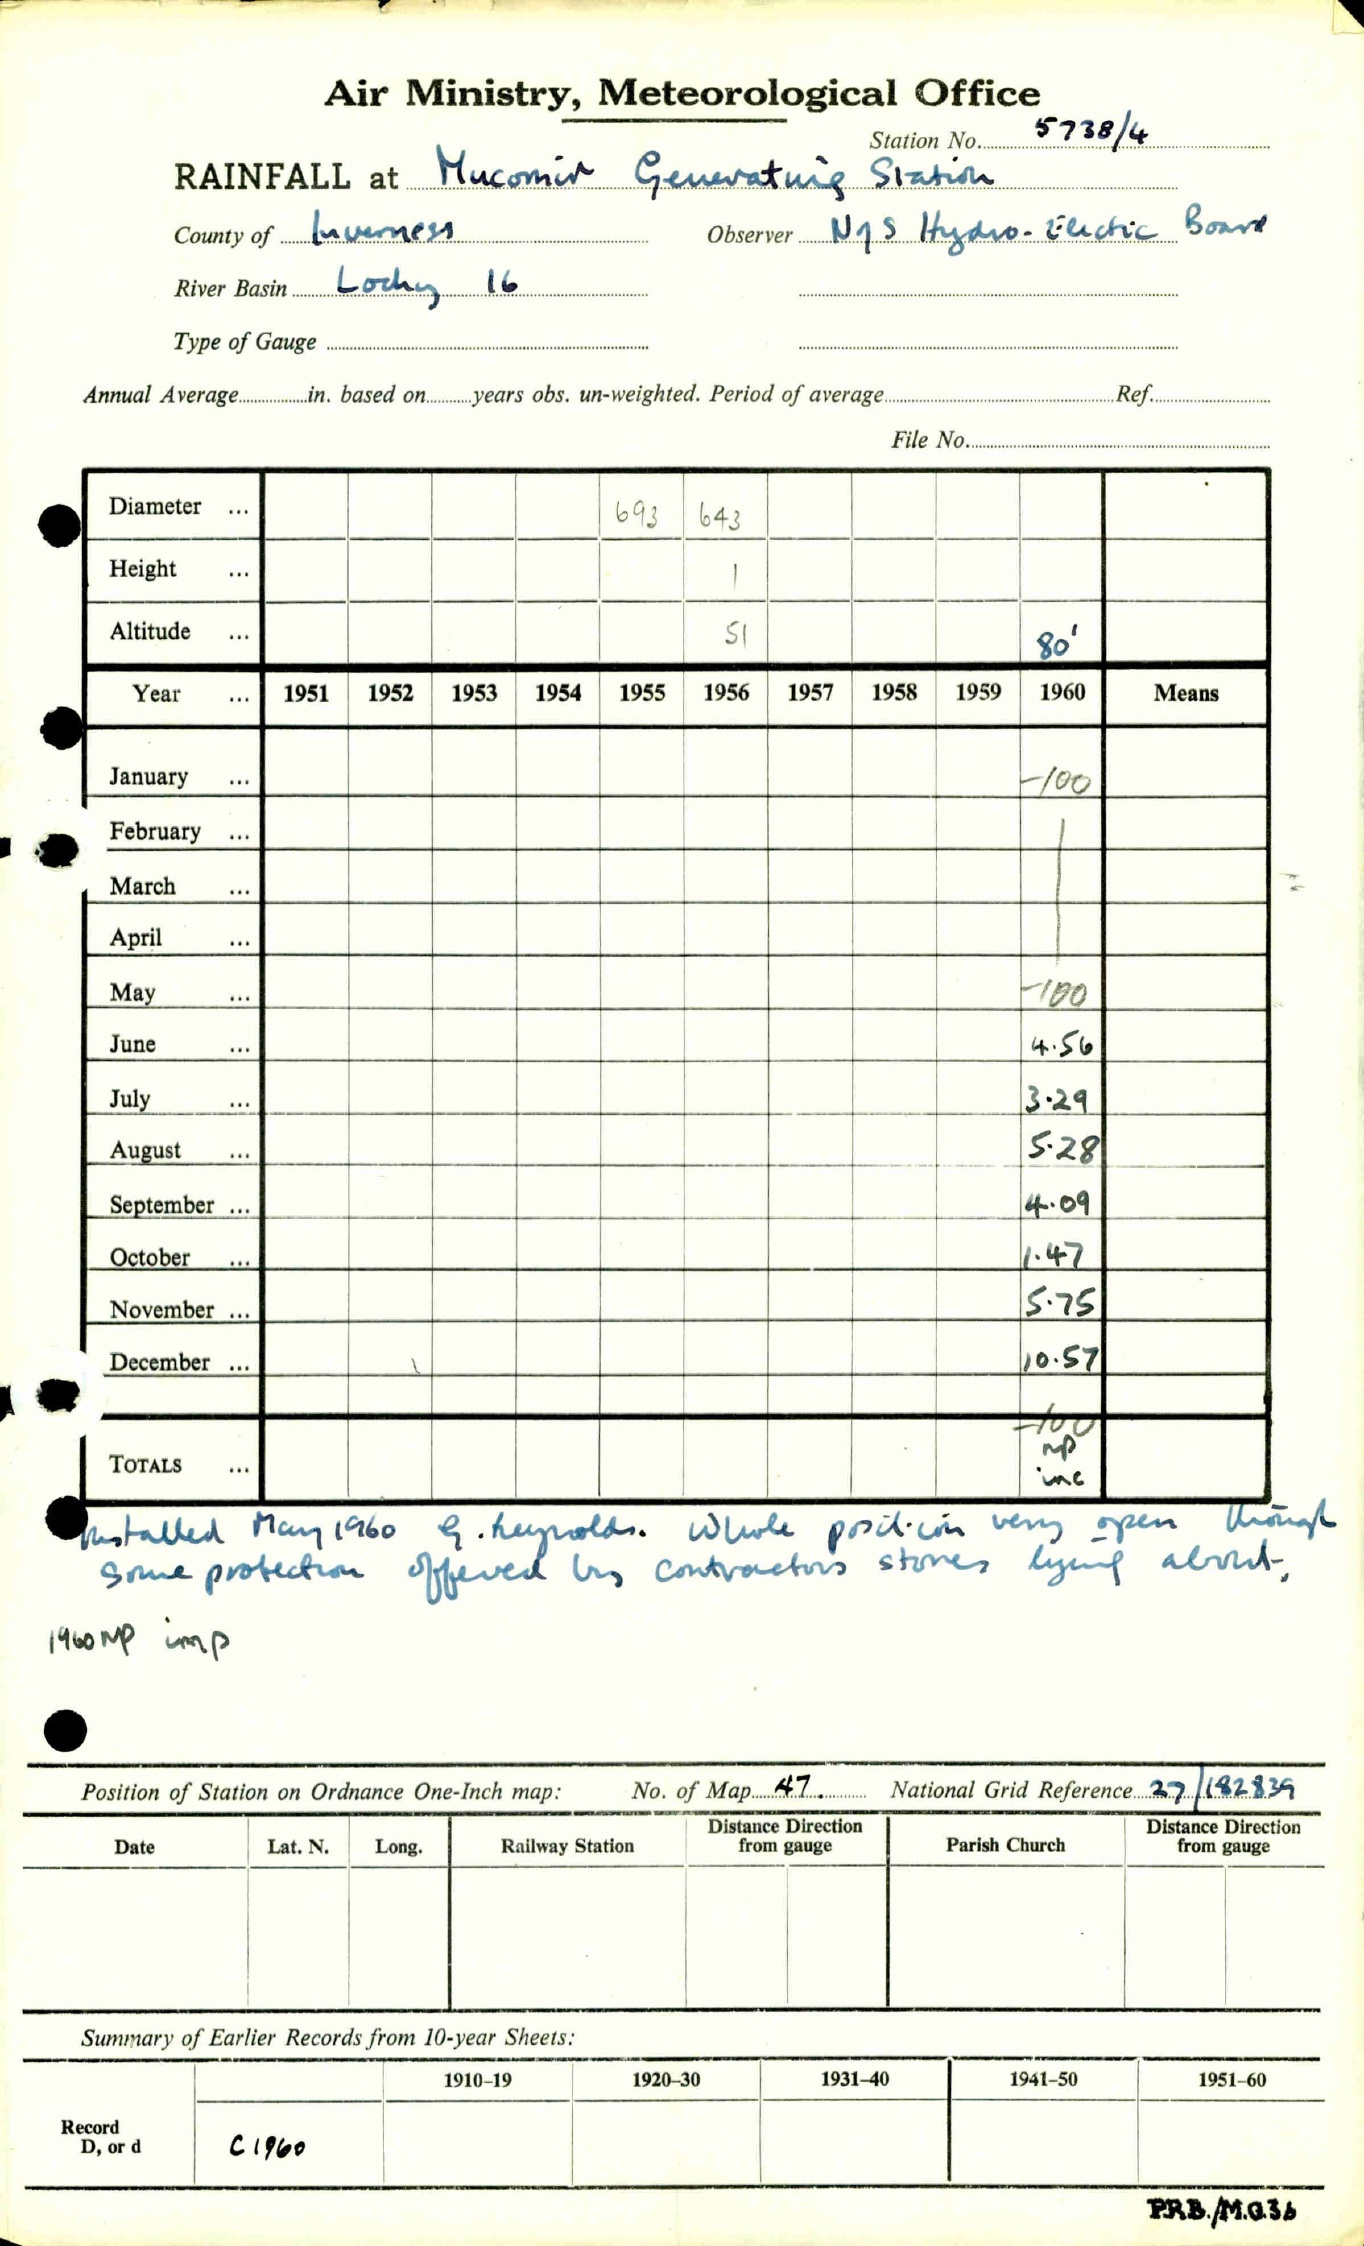 Air Ministry, Meteorological Office
Station No. 5738/4
RAINFALL at Mucomir Generating Station
County of Inverness Observer N of S Hydro-Electric Board
River Basin Lochy 16
Type of Gauge
Annual Average in. based on years obs. un-weighted. Period of average Ref.
File No.
Diameter ... 693 643
Height ... 1
Altitude ... 51 80'
Year ... 1951 1952 1953 1954 1955 1956 1957 1958 1959 1960 Means
January ... -100
February ...
March ...
April ...
May ... -100
June ... 4.56
July ... 3.29
August ... 5.28
September ... 4.09
October ... 1.47
November ... 5.75
December ... 10.57
-100
NP
TOTALS ... inc
Installed May 1960 G. Reynolds. Whole position very open though
some protection offered by contractors stores lying about.
1960 NP imp
Position of Station on Ordnance One-Inch map: No. of Map 47. National Grid Reference 27/182839
Date Lat. N. Long. Railway Station Distance Direction from gauge Parish Church Distance Direction from gauge
Summary of Earlier Records from 10-year Sheets:
1910–19 1920–30 1931–40 1941–50 1951–60
Record
D, or d C1960
P.R.B./M.O.36